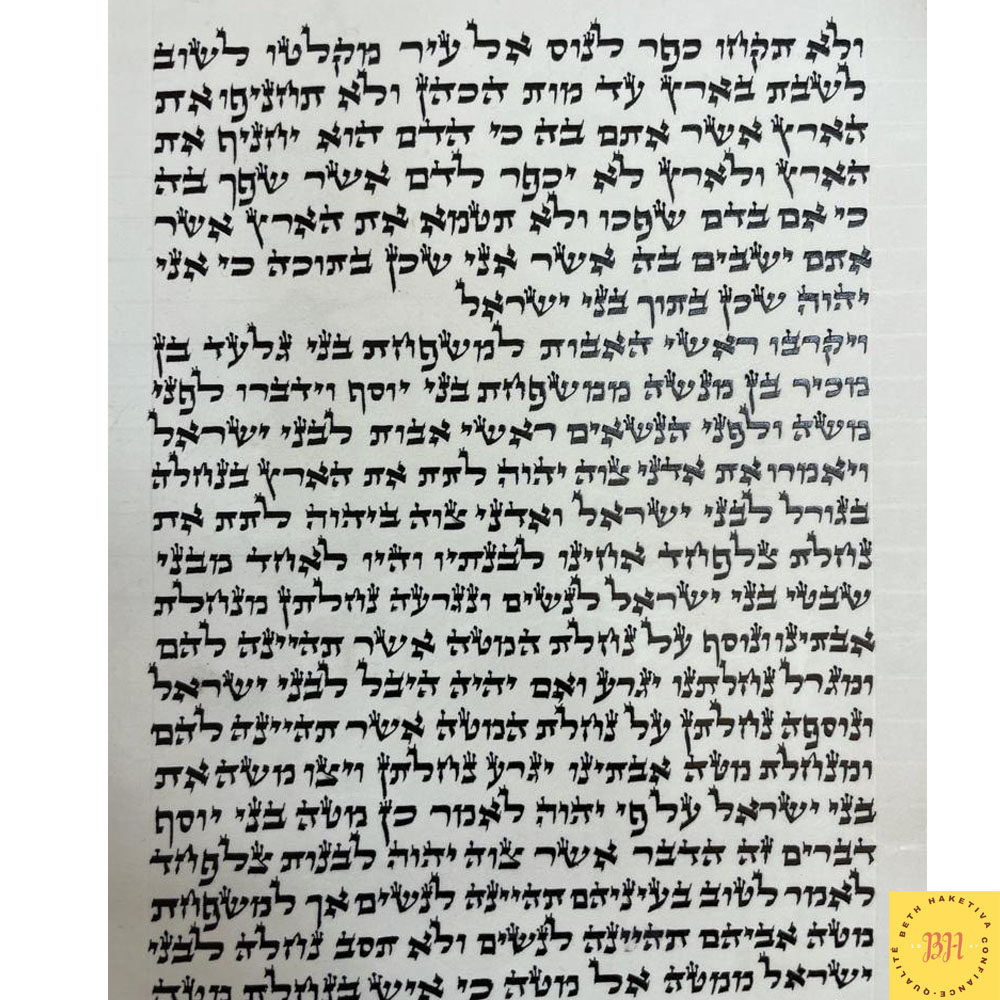 ולא תקחו כפר לנוס אל עיר מקלטו לשוב
לשבת בארץ עד מות הכהן ולא תחניפו את
הארץ אשר אתם בה כי הדם הוא יחניף את
הארץ ולארץ לא יכפר לדם אשר שפך בה
כי אם בדם שפכו ולא תטמא את הארץ אשר
אתם ישבים בה אשר אני שכן בתוכה כי אני
יהוה שכן בתוך בני ישראל
ויקרבו ראשי האבות למשפחת בני גלעד בן
מכיר בן מנשה ממשפחת בני יוסף וידברו לפני
משה ולפני הנשאים ראשי אבות לבני ישראל
ויאמרו את אדני צוה יהוה לתת את הארץ בנחלה
בגורל לבני ישראל ואדני צוה ביהוה לתת את
נחלת צלפחד אחינו לבנתיו והיו לאחד מבני
שבטי בני ישראל לנשים ונגרעה נחלתן מנחלת
אבתינו ונוסף על נחלת המטה אשר תהיינה להם
ומגרל נחלתנו יגרע ואם יהיה היבל לבני ישראל
ונוספה נחלתן על נחלת המטה אשר תהיינה להם
ומנחלת מטה אבתינו יגרע נחלתן ויצו משה את
בני ישראל על פי יהוה לאמר כן מטה בני יוסף
דברים זה הדבר אשר צוה יהוה לבנות צלפחד
לאמר לטוב בעיניהם תהיינה לנשים אך למשפחת
מטה אביהם תהיינה לנשים ולא תסב נחלה לבני
ישראל ממטה אל מטה כי איש בנחלת מטה
BETH HAKETIVA
CONFIANCE · QUALITÉ
BH